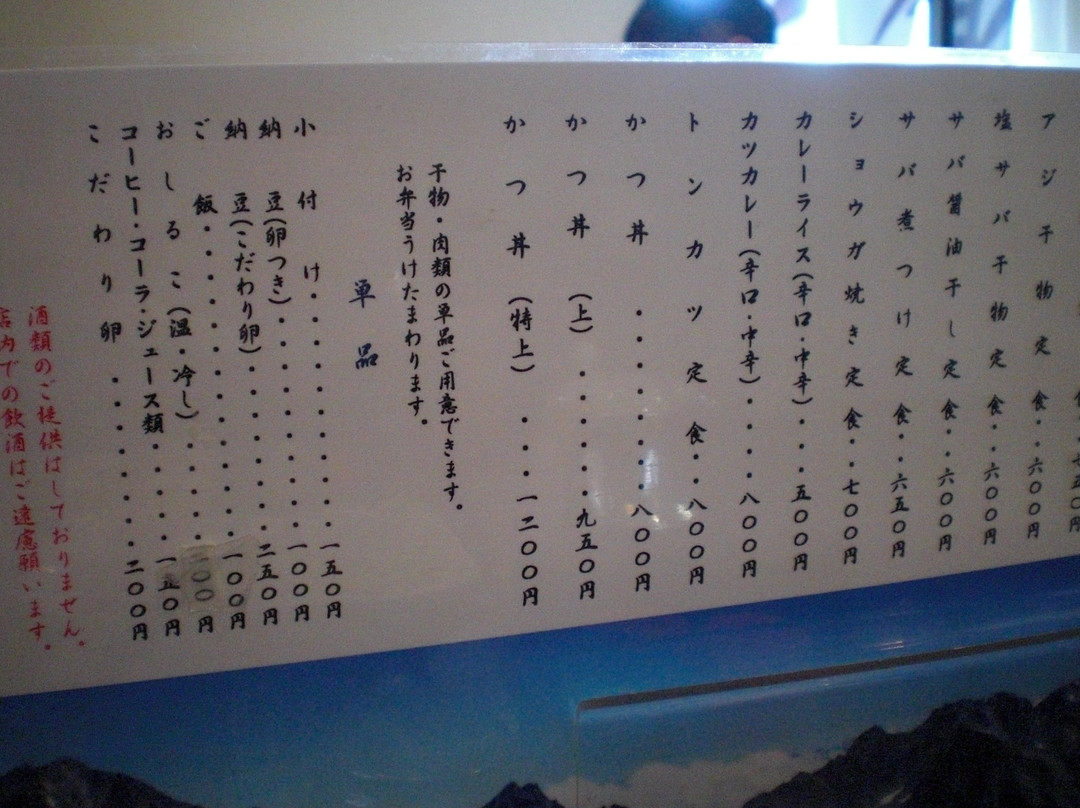 アジ干物定食・・六〇〇円
塩サバ干物定食・・六〇〇円
サバ醤油干し定食・・六〇〇円
サバ煮つけ定食・・六五〇円
ショウガ焼き定食・・七〇〇円
カレーライス(辛口・中辛)・・・五〇〇円
カツカレー(辛口・中辛)・・・・八〇〇円
トンカツ定食・・八〇〇円
かつ丼・・・・・・・・八〇〇円
かつ丼(上)・・・・・・九五〇円
かつ丼(特上)・・・一二〇〇円
干物・肉類の単品ご用意できます。
お弁当うけたまわります。
単品
小付け・・・・・・・・・・一五〇円
納豆(卵つき)・・・・・・・・・一〇〇円
納豆(こだわり卵)・・・・・・・二五〇円
ご飯・・・・・・・・・・・・・一〇〇円
おしるこ(温・冷し)・・・・・円
コーヒー・コーラ・ジュース類・・・・・一五〇円
こだわり卵・・・・・・・二〇〇円
酒類のご提供はしておりません。
店内での飲酒はご遠慮願います。